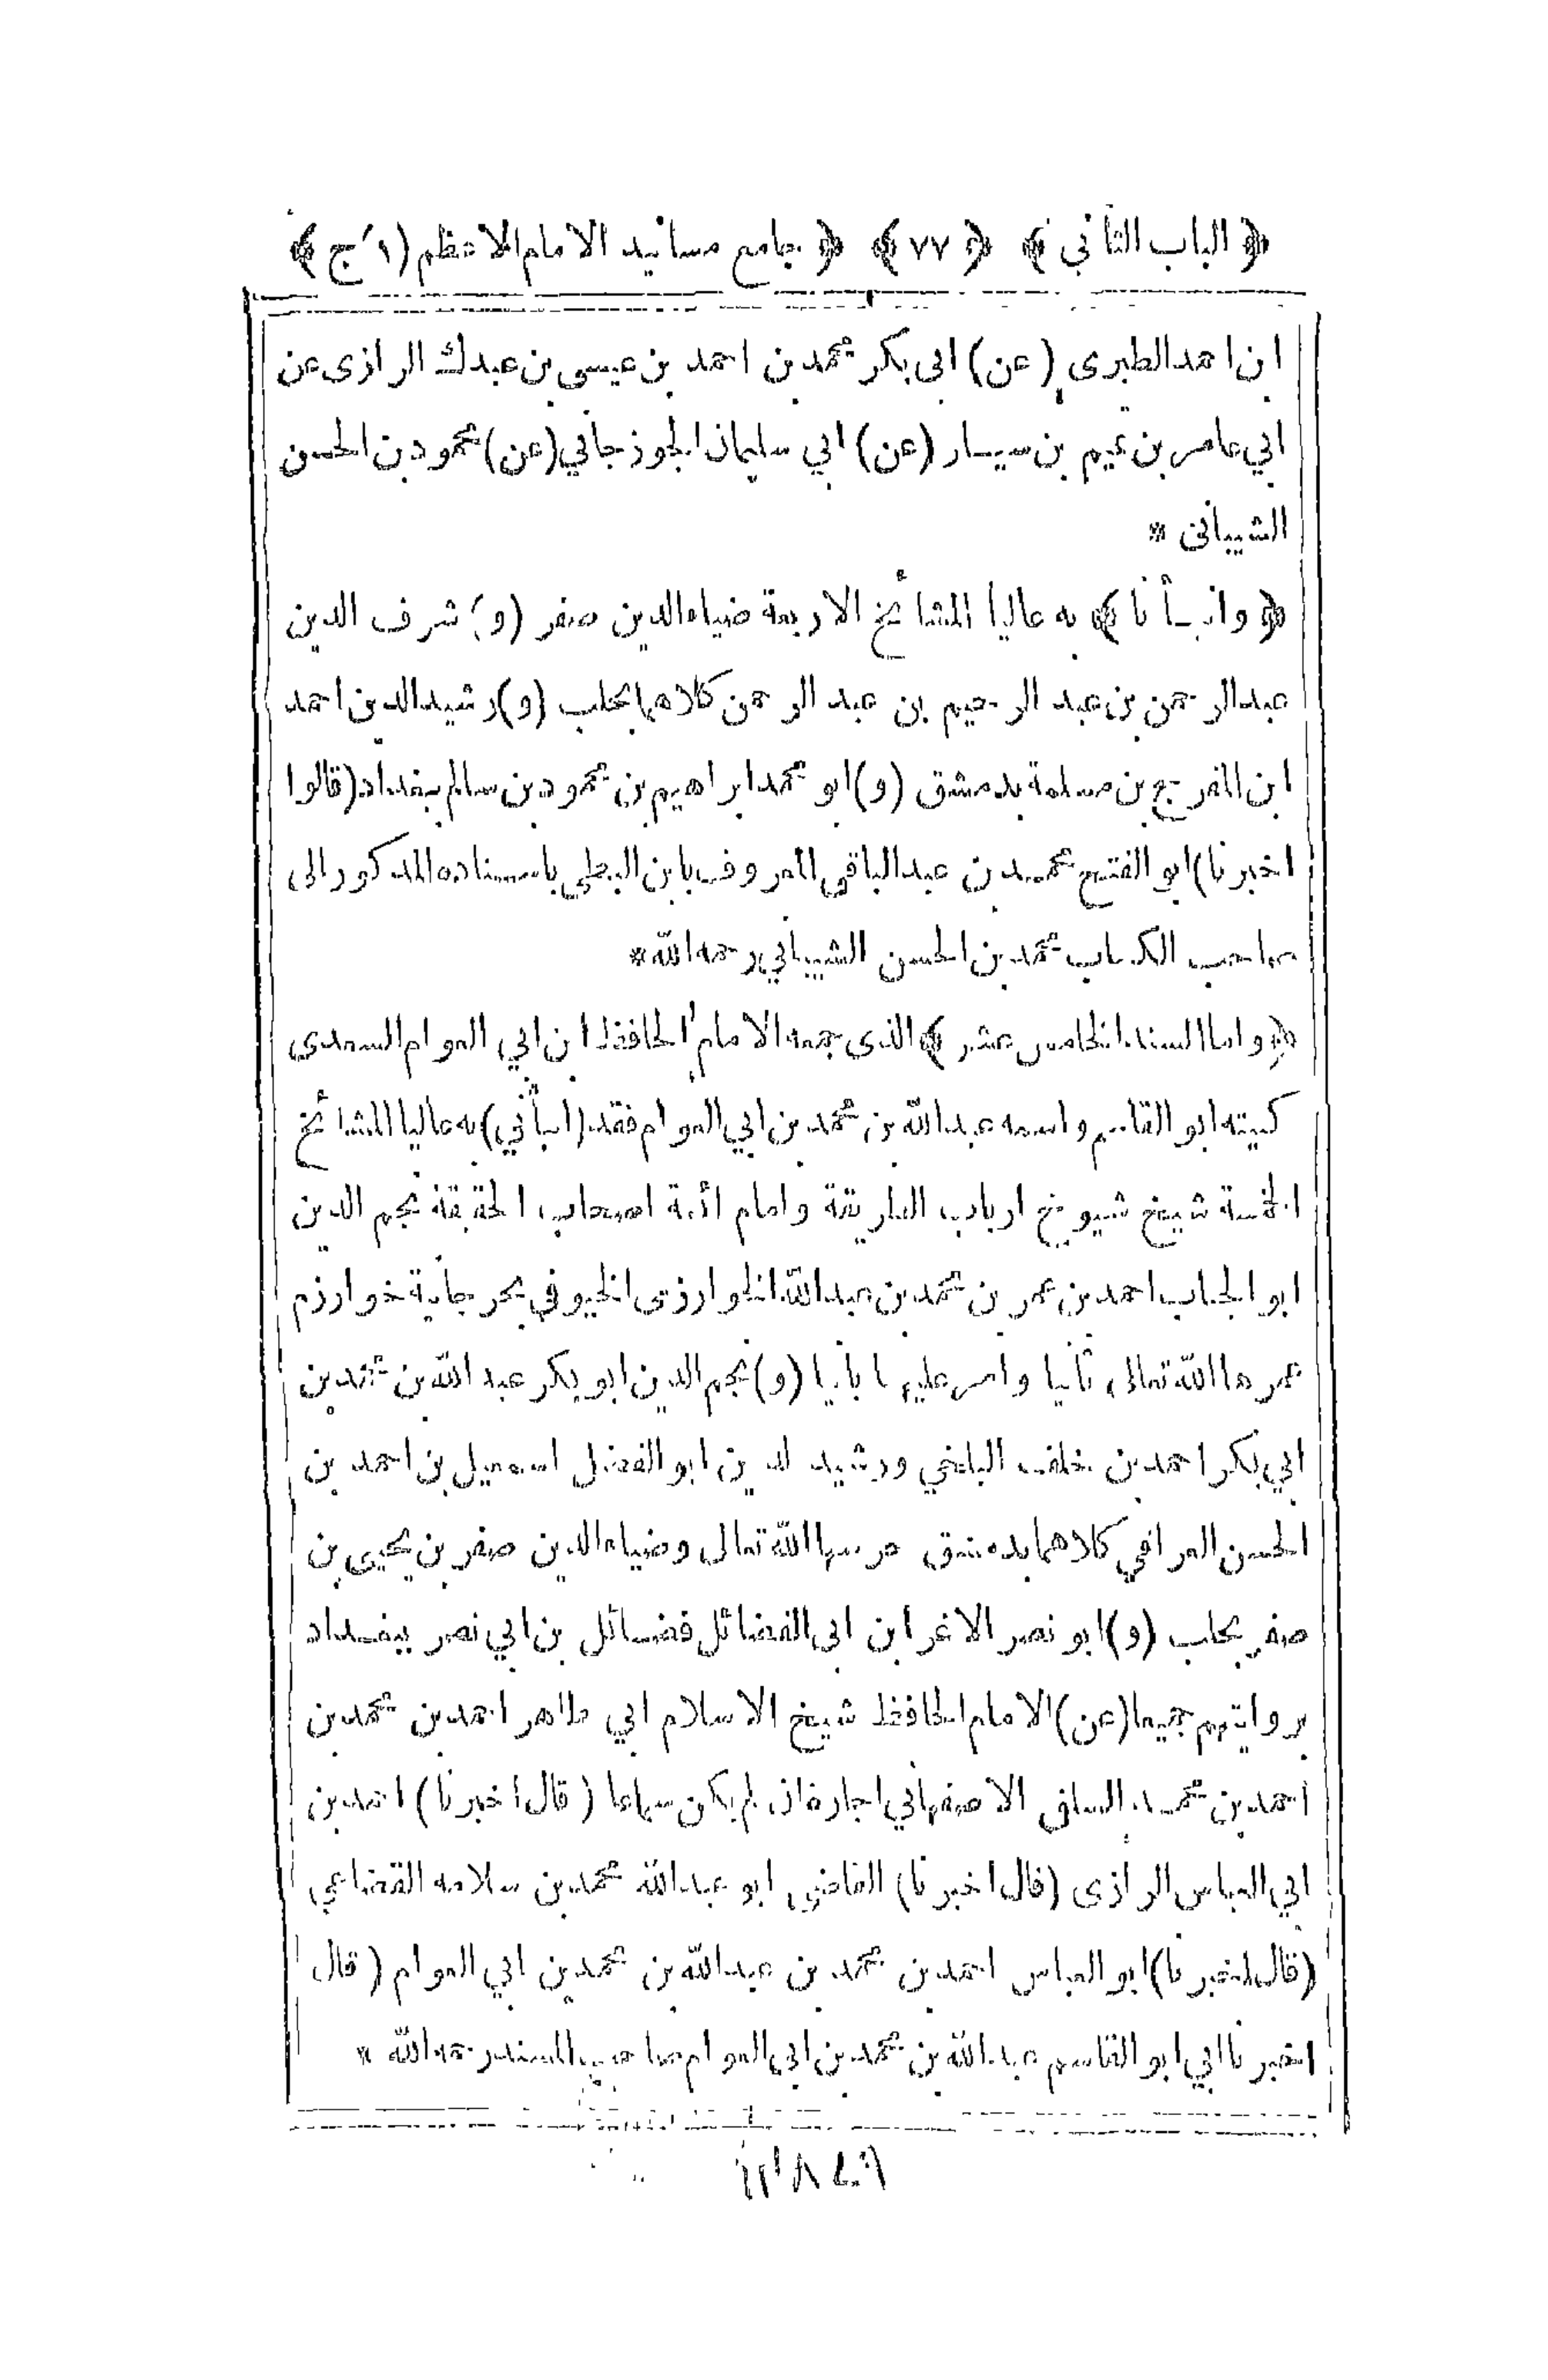 ﴿ الباب الثاني ﴾ ﴿ ٧٧ ﴾ ﴿ جامع مسانيد الامام الاعظم (ج ١) ﴾
ابن احمد الطبرى (عن) ابى بكر محمد بن احمد بن عيسى بن عبدك الرازى عن
ابي عامر بن تميم بن سيار (عن) ابي سليمان الجوزجاني (عن) محمود بن الحسن
الشيبانى *
﴿ وانبأنا ﴾ به عاليا المشائخ الاربعة ضياء الدين صقر (و) شرف الدين
عبد الرحمن بن عبد الرحيم بن عبد الرحمن كلاهما بحلب (و) رشيد الدين احمد
ابن المفرج بن مسلمة بدمشق (و) ابو محمد ابراهيم بن محمود بن سالم ببغداد (قالوا
اخبرنا) ابو الفتح محمد بن عبد الباقى المعروف بابن البطي باسناده المذكور الى
صاحب الكتاب محمد بن الحسن الشيباني رحمه الله *
﴿ واما المسند الخامس عشر ﴾ الذى جمعه الامام الحافظ ابن ابي العوام السعدى
كنيته ابو القاسم واسمه عبد الله بن محمد بن ابي العوام فقد (انبأني) به عاليا المشائخ
الخمسة شيخ شيوخ ارباب الطريقة وامام ائمة اصحاب الحقيقة نجم الدين
ابو الجناب احمد بن عمر بن محمد بن عبد الله الخوارزمى الخيوفي بجرجانية خوارزم
عمرها الله تعالى ثانيا (و) نجم الدين ابو بكر عبد الله بن محمد بن
ابي بكر احمد بن خلف البلخي ورشيد الدين ابو الفضل اسمعيل بن احمد بن
الحسن العراقي كلاهما بدمشق حرسها الله تعالى وضياء الدين صقر بن يحيى بن
صقر بحلب (و) ابو نصر الاغر ابن ابى الفضائل فضائل بن ابي نصر ببغداد
بروايتهم جميعا (عن) الامام الحافظ شيخ الاسلام ابي طاهر احمد بن محمد بن
احمد بن محمد السلفى الاصفهاني اجازة ان لم يكن سماعا (قال اخبرنا) احمد بن
ابي العباس الرازى (قال اخبرنا) القاضي ابو عبد الله محمد بن سلامه القضاعي
(قال اخبرنا) ابو العباس احمد بن محمد بن عبد الله بن محمد بن ابي العوام (قال
اخبرنا ابي ابو القاسم عبد الله بن محمد بن ابى العوام صاحب المسند رحمه الله *